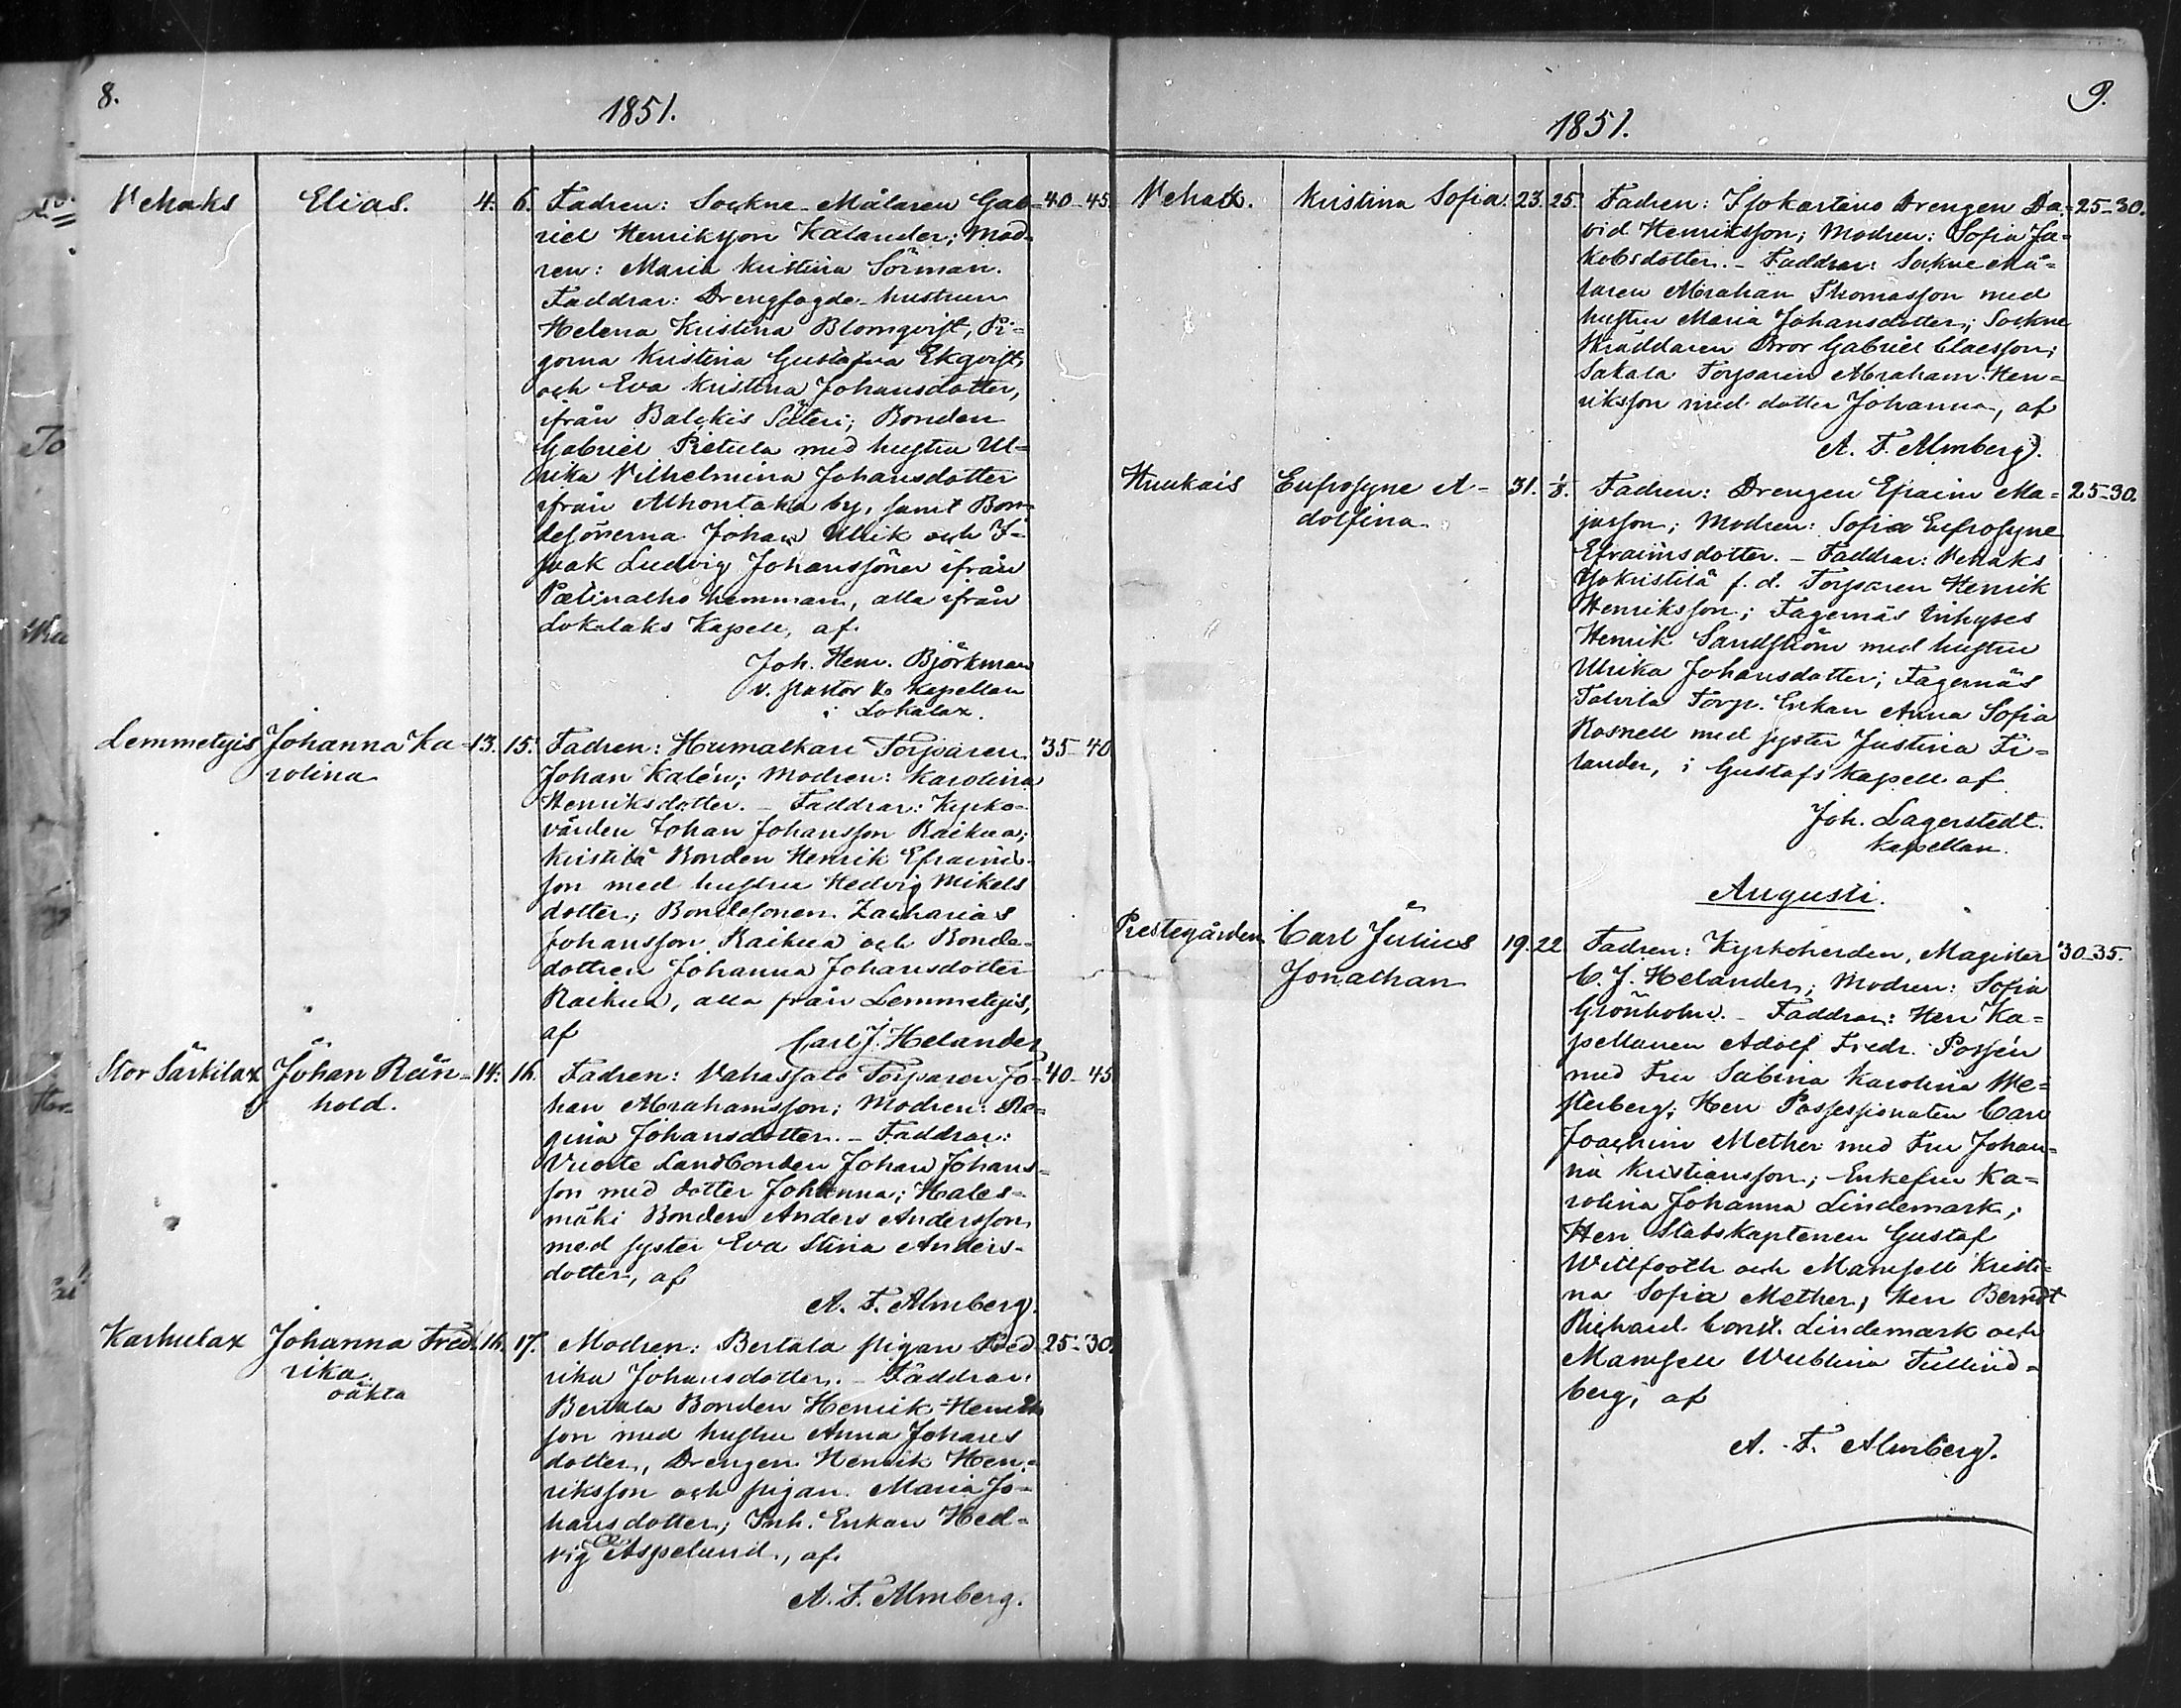 8.
1851.
Vehaks Elias. 4. 6. Fadren: Sockne-Målaren Gab- 40-45.
riel Henriksson Kalander; Mod-
ren: Maria Kristina Sörman.
Faddrar: Drengfogde-hustrun
Helena Kristina Blomqvist, Pi-
gorna Kristina Gustafva Ekqvist,
och Eva Kristina Johansdotter,
ifrån Balckis Säteri; Bonden
Gabriel Pietula med hustru Ul-
rika Vilhelmina Johansdotter
ifrån Alhontaka by, samt Bon-
desönerna Johan Ulrik och I-
saak Ludvig Johanssöner ifrån
hemman, alla ifrån
Lokalaks Kapell, af
Joh. Henr. Björkman
v. pastor & kapellan
i Lokalax.
Lemmetyis Johanna Ka- 13. 15. Fadren: Humalkari Torparen 35-40
rolina Johan Kalén; Modren: Karolina
Henriksdotter. - Faddrar: Kyrko-
värden Johan Johansson Raikua;
Kristilä Bonden Henrik Efraims-
son med hustru Hedvig Mikels
dotter; Bondesonen Zacharias
Johansson Raikua och Bonde-
dottren Johanna Johansdotter
Raikua, alla från Lemmetyis,
af Carl J. Helander
Stor Särkilax Johan Rein- 14. 16. Fadren: Torparen Jo- 40-45
hold. han Abrahamsson; Modren: Re-
gina Johansdotter. - Faddrar:
Landbonden Johan Johans-
son med dotter Johanna; Hales-
mäki Bonden Anders Andersson
med syster Eva Stina Anders-
dotter, af
A. F. Almberg.
Karhulax Johanna Fred- 16. 17. Modren: Bertala pigan Fred- 25-30.
rika. rika Johansdotter. - Faddrar:
oäkta Bertala Bonden Henrik Henriks
son med hustru Anna Johans
dotter, Drengen Henrik Hen-
riksson och pigan Maria Jo-
hansdotter; Inh. Enkan Hed-
vig Aspelund, af
A. F. Almberg.
9.
1851.
Vehax. Kristina Sofia. 23. 25. Fadren: Drengen Da- 25-30.
vid Henriksson; Modren: Sofia Ja-
kobsdotter. - Faddrar: Sockne Må-
laren Abraham Thomasson med
hustru Maria Johansdotter; Sockne
Skräddaren Bror Gabriel Claesson;
Sakala Torparen Abraham Hen-
riksson med dotter Johanna, af
A. F. Almberg.
Huukais Eufrosyne A- 31. 1/8. Fadren: Drengen Efraim Ma- 25-30.
dolfina jasson; Modren: Sofia Eufrosyne
Efraimsdotter. - Faddrar: Vehaks
Ylikristilä f. d. Torparen Henrik
Henriksson; Fagernäs Inhyses
Henrik Sandström med hustru
Ulrika Johansdotter; Fagernäs
Talvila Torp. Enkan Anna Sofia
Rosnell med syster Justina Fi-
lander, i Gustafs Kapell af
Joh. Lagerstedt.
Kapellan.
Augusti.
Prestegården Carl Julius 19. 22 Fadren: Kyrkoherden, Magister 30-35.
Jonathan C. J. Helander; Modren: Sofia
Grönholm. - Faddrar: Herr Ka-
pellanen Adolf Fredr. Possén
med Fru Sabina Karolina We-
sterberg; Herr Possessionaten Carl
Joachim Mether med Fru Johan-
na Kristiansson; Enkefru Ka-
rolina Johanna Lindemark;
Herr Stabskaptenen Gustaf
Willfooth och Mamsell Kristi-
na Sofia Mether; Herr Berndt
Richard Const. Lindemark och
Mamsell Tullind-
berg, af
A. F. Almberg.